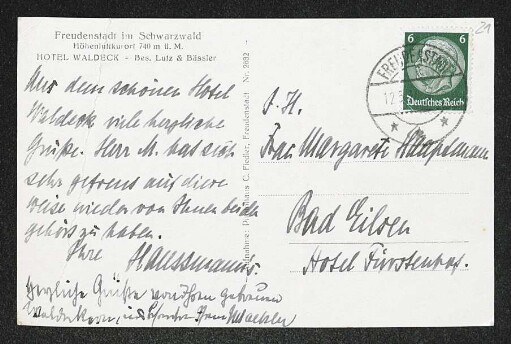 Freudenstadt im Schwarzwald
Höhenluftkurort 740 m ü. M.
HOTEL WALDECK - Bes. Lutz & Bässler
Aus dem schönen Hotel
Waldeck viele herzliche
Grüße. Herr M. hat sich
sehr gefreut auf diese
Weise wieder von Ihnen beiden
gehört zu haben.
Ihre
Haussmanns.
Herzliche Grüße von Ihren getreuen
C. Fiedler, Freudenstadt Nr. 2682
6 6
Deutsches Reich
FREUDENSTADT
21
S. H.
Frau Margarete
Bad Eilsen
Hotel Fürstenhof.